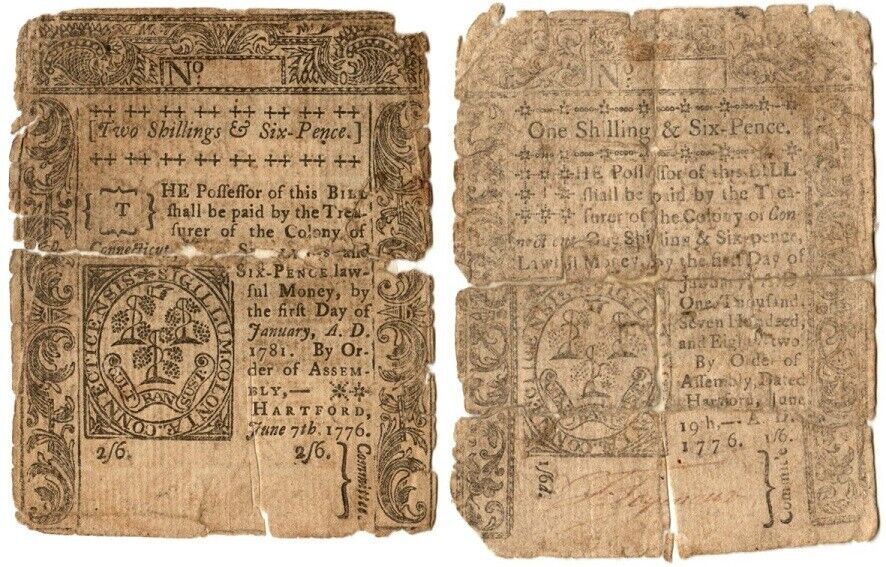 No
[Two Shillings & Six-Pence.]
T
HE Poſſeſſor of this BILL
ſhall be paid by the Trea-
ſurer of the Colony of
Connecticut
and
SIX-PENCE law-
ful Money, by
the firſt Day of
January, A. D.
1781. By Or-
der of ASSEM-
BLY,—
HARTFORD,
June 7th. 1776.
SIGILLUM. COLONIÆ. CONNECTICENSIS
QUI TRANS SUST
2ſ6. 2ſ6.
Committee.
No.
One Shilling & Six-Pence.
HE Poſſeſſor of this BILL
ſhall be paid by the Trea-
ſurer of the Colony of Con
necticut One Shilling & Six-pence,
Lawful Money, by the firſt Day of
One Thouſand
Seven Hundred,
and Eighty two
By Order of
Aſſembly, Dated
Hartford, June
19th,— A. D.
1776. 1ſ6.
1ſ6d.
Committee